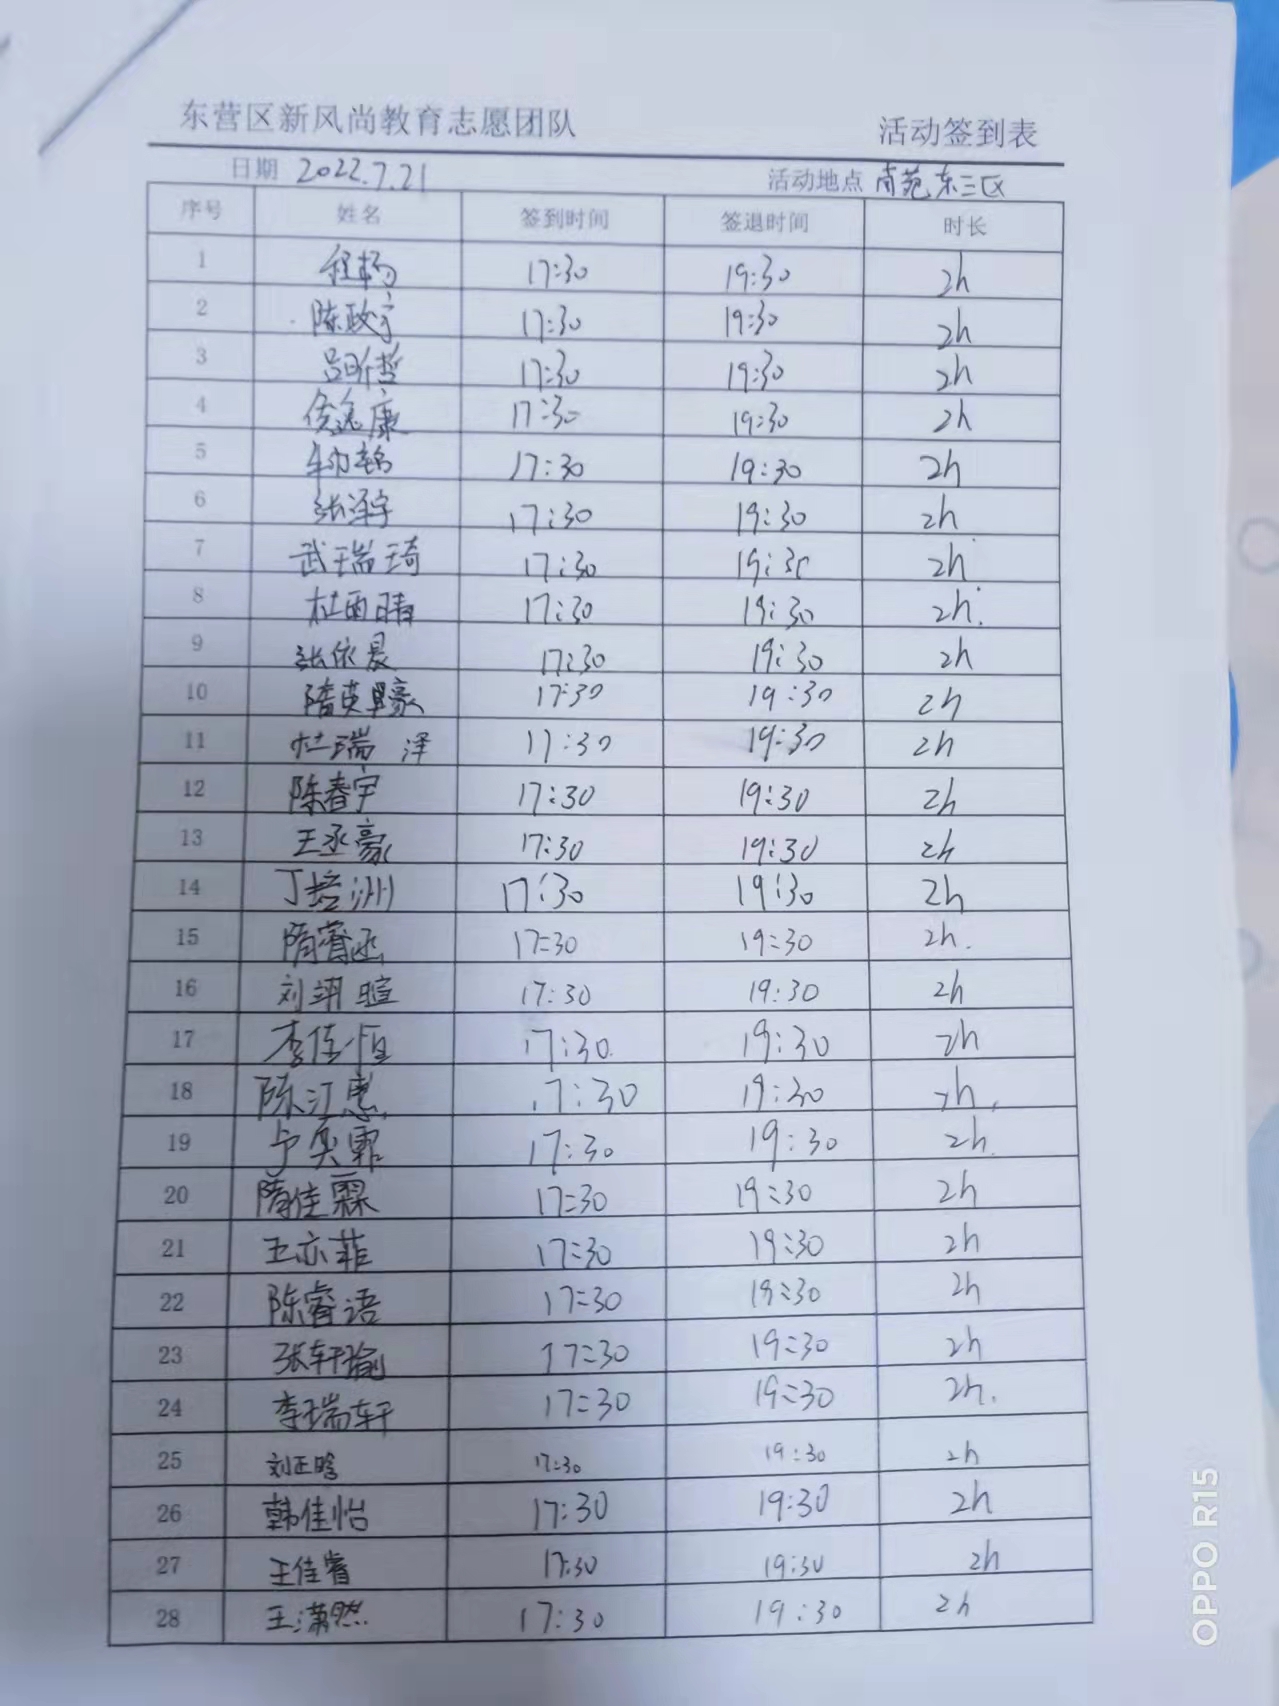 东营区新风尚教育志愿团队 活动签到表
日期 2022.7.21 活动地点 东三区
序号 姓名 签到时间 签退时间 时长
1 程杨 17:30 19:30 2h
2 陈政宇 17:30 19:30 2h
3 吕昕哲 17:30 19:30 2h
4 康 17:30 19:30 2h
5 17:30 19:30 2h
6 张泽宇 17:30 19:30 2h
7 武瑞琦 17:30 19:30 2h
8 杜雨晴 17:30 19:30 2h
9 张依晨 17:30 19:30 2h
10 隋英卓豪 17:30 19:30 2h
11 杜瑞泽 17:30 19:30 2h
12 陈春宇 17:30 19:30 2h
13 王丞豪 17:30 19:30 2h
14 丁培洲 17:30 19:30 2h
15 隋睿涵 17:30 19:30 2h.
16 刘翊暄 17:30 19:30 2h
17 李佳恒 17:30 19:30 2h
18 陈江惠 17:30 19:30 2h
19 卢奕霏 17:30 19:30 2h
20 隋佳霖 17:30 19:30 2h
21 王亦菲 17:30 19:30 2h
22 陈睿语 17:30 19:30 2h
23 张轩瑜 17:30 19:30 2h
24 李瑞轩 17:30 19:30 2h.
25 刘正晗 17:30 19:30 2h
26 韩佳怡 17:30 19:30 2h
27 王佳睿 17:30 19:30 2h
28 王潇然 17:30 19:30 2h
OPPO R15